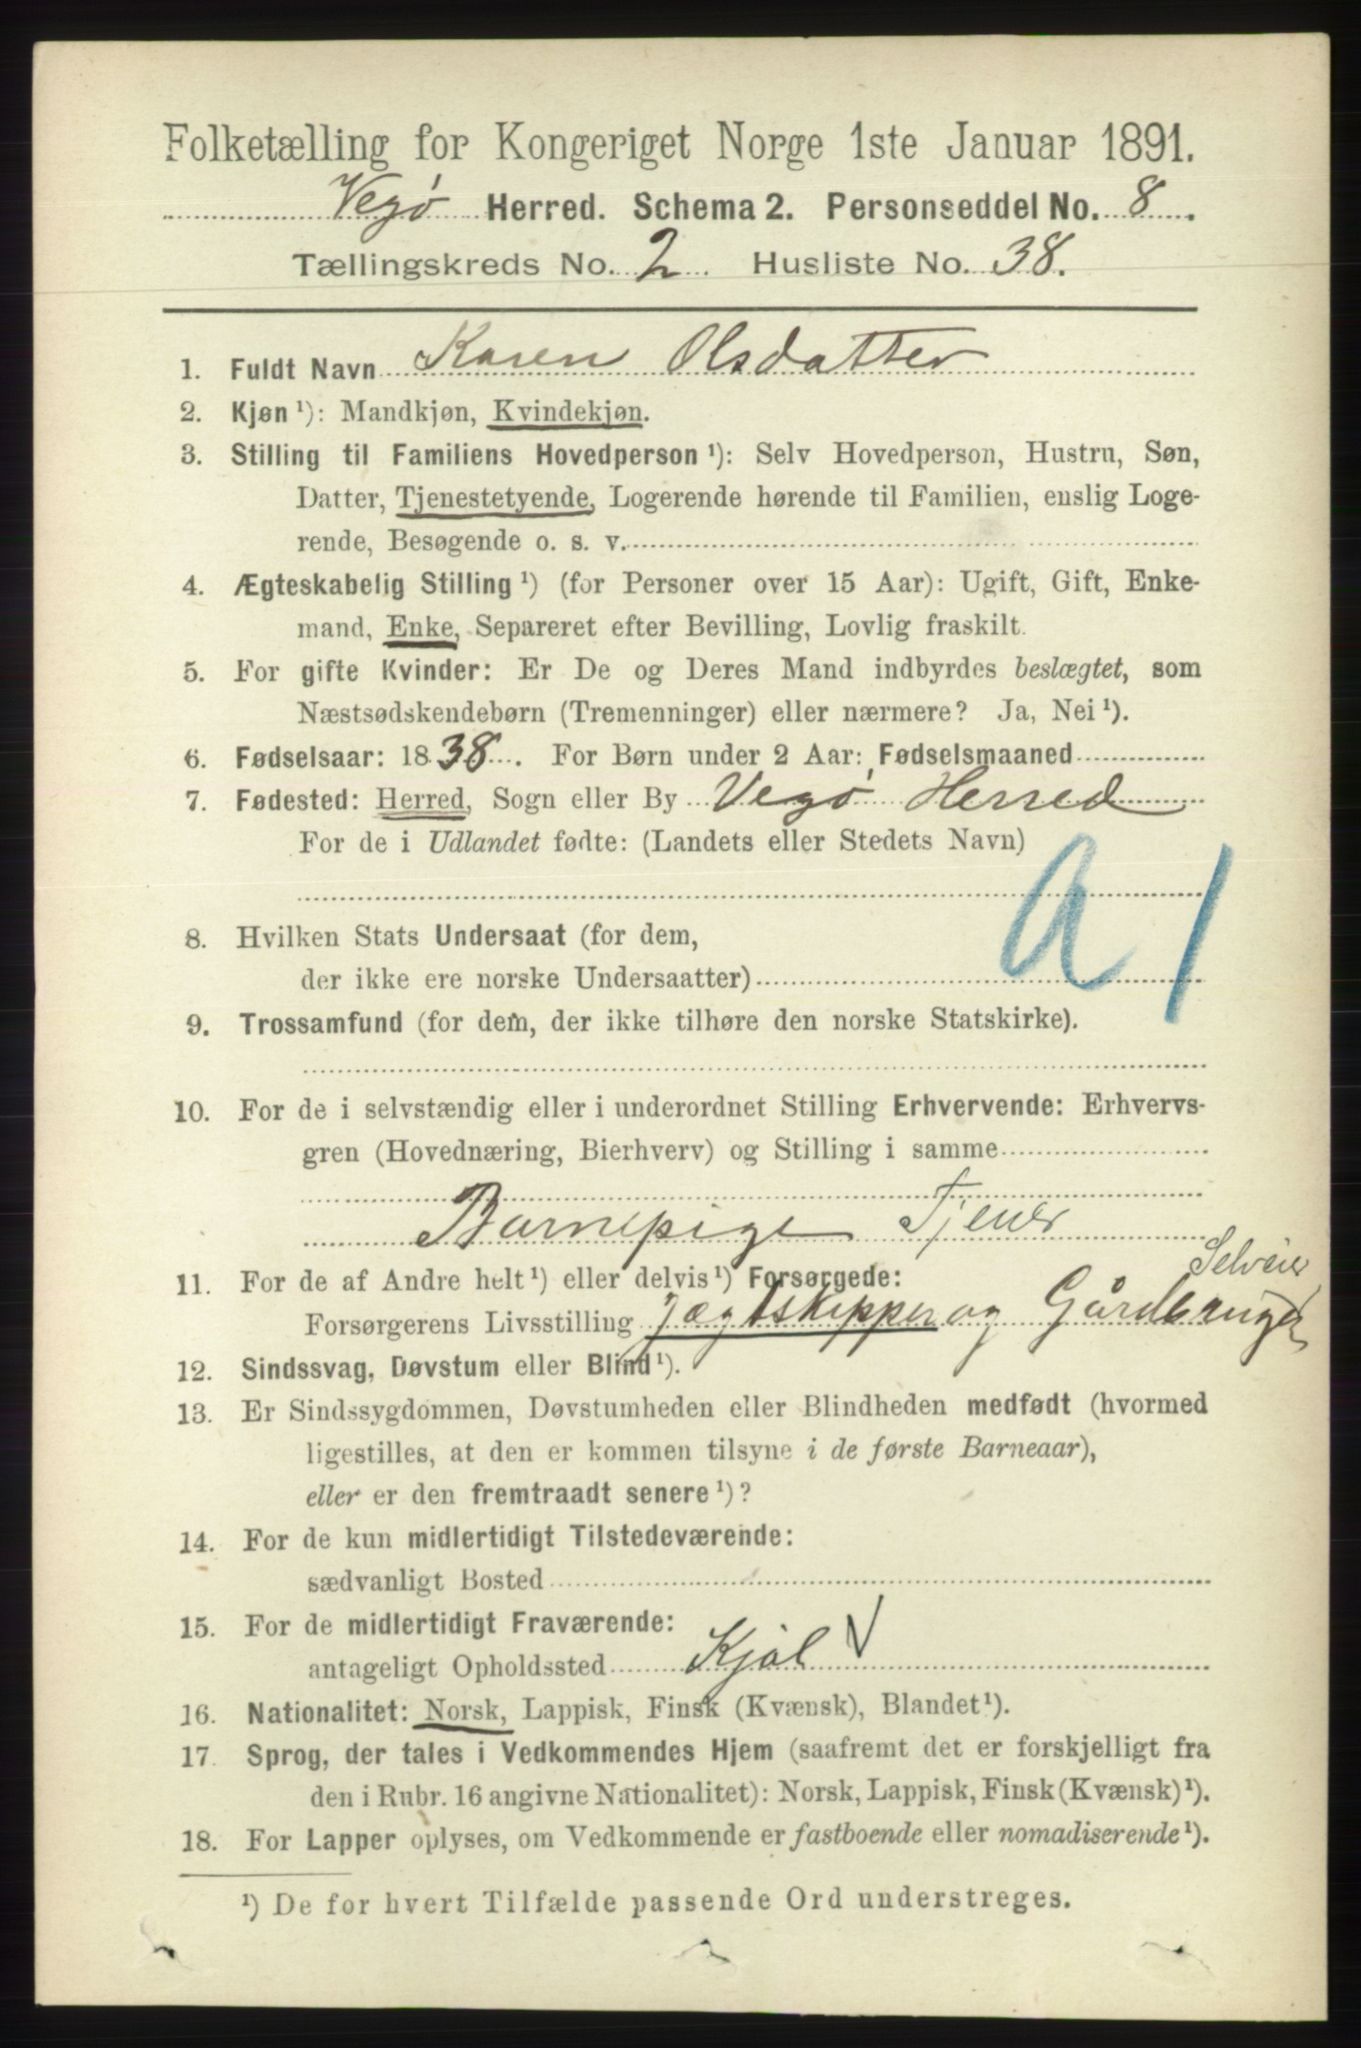 Folketælling for Kongeriget Norge 1ste Januar 1891.
Vegø Herred. Schema 2. Personseddel No. 8.
Tællingskreds No. 2 Husliste No. 38.
1. Fuldt Navn Karen Olsdatter
2. Kjøn ¹): Mandkjøn, Kvindekjøn.
3. Stilling til Familiens Hovedperson ¹): Selv Hovedperson, Hustru, Søn,
Datter, Tjenestetyende, Logerende hørende til Familien, enslig Loge-
rende, Besøgende o. s. v.
4. Ægteskabelig Stilling ¹) (for Personer over 15 Aar): Ugift, Gift, Enke-
mand, Enke, Separeret efter Bevilling, Lovlig fraskilt.
5. For gifte Kvinder: Er De og Deres Mand indbyrdes beslægtet, som
Næstsødskendebørn (Tremenninger) eller nærmere? Ja, Nei ¹).
6. Fødselsaar: 1838. For Børn under 2 Aar: Fødselsmaaned
7. Fødested: Herred, Sogn eller By Vegø Herred
For de i Udlandet fødte: (Landets eller Stedets Navn)
A 1
8. Hvilken Stats Undersaat (for dem,
der ikke ere norske Undersaatter)
9. Trossamfund (for dem, der ikke tilhøre den norske Statskirke).
10. For de i selvstændig eller i underordnet Stilling Erhvervende: Erhvervs-
gren (Hovednæring, Bierhverv) og Stilling i samme
Barnepige Tjener
Selveier
11. For de af Andre helt ¹) eller delvis ¹) Forsørgede:
Forsørgerens Livsstilling Jægtskipper og Gårdbruger
12. Sindssvag, Døvstum eller Blind ¹).
13. Er Sindssygdommen, Døvstumheden eller Blindheden medfødt (hvormed
ligestilles, at den er kommen tilsyne i de første Barneaar),
eller er den fremtraadt senere ¹)?
14. For de kun midlertidigt Tilstedeværende:
sædvanligt Bosted
15. For de midlertidigt Fraværende:
antageligt Opholdssted Kjøl
16. Nationalitet: Norsk, Lappisk, Finsk (Kvænsk), Blandet ¹).
17. Sprog, der tales i Vedkommendes Hjem (saafremt det er forskjelligt fra
den i Rubr. 16 angivne Nationalitet): Norsk, Lappisk, Finsk (Kvænsk) ¹).
18. For Lapper oplyses, om Vedkommende er fastboende eller nomadiserende ¹).
¹) De for hvert Tilfælde passende Ord understreges.